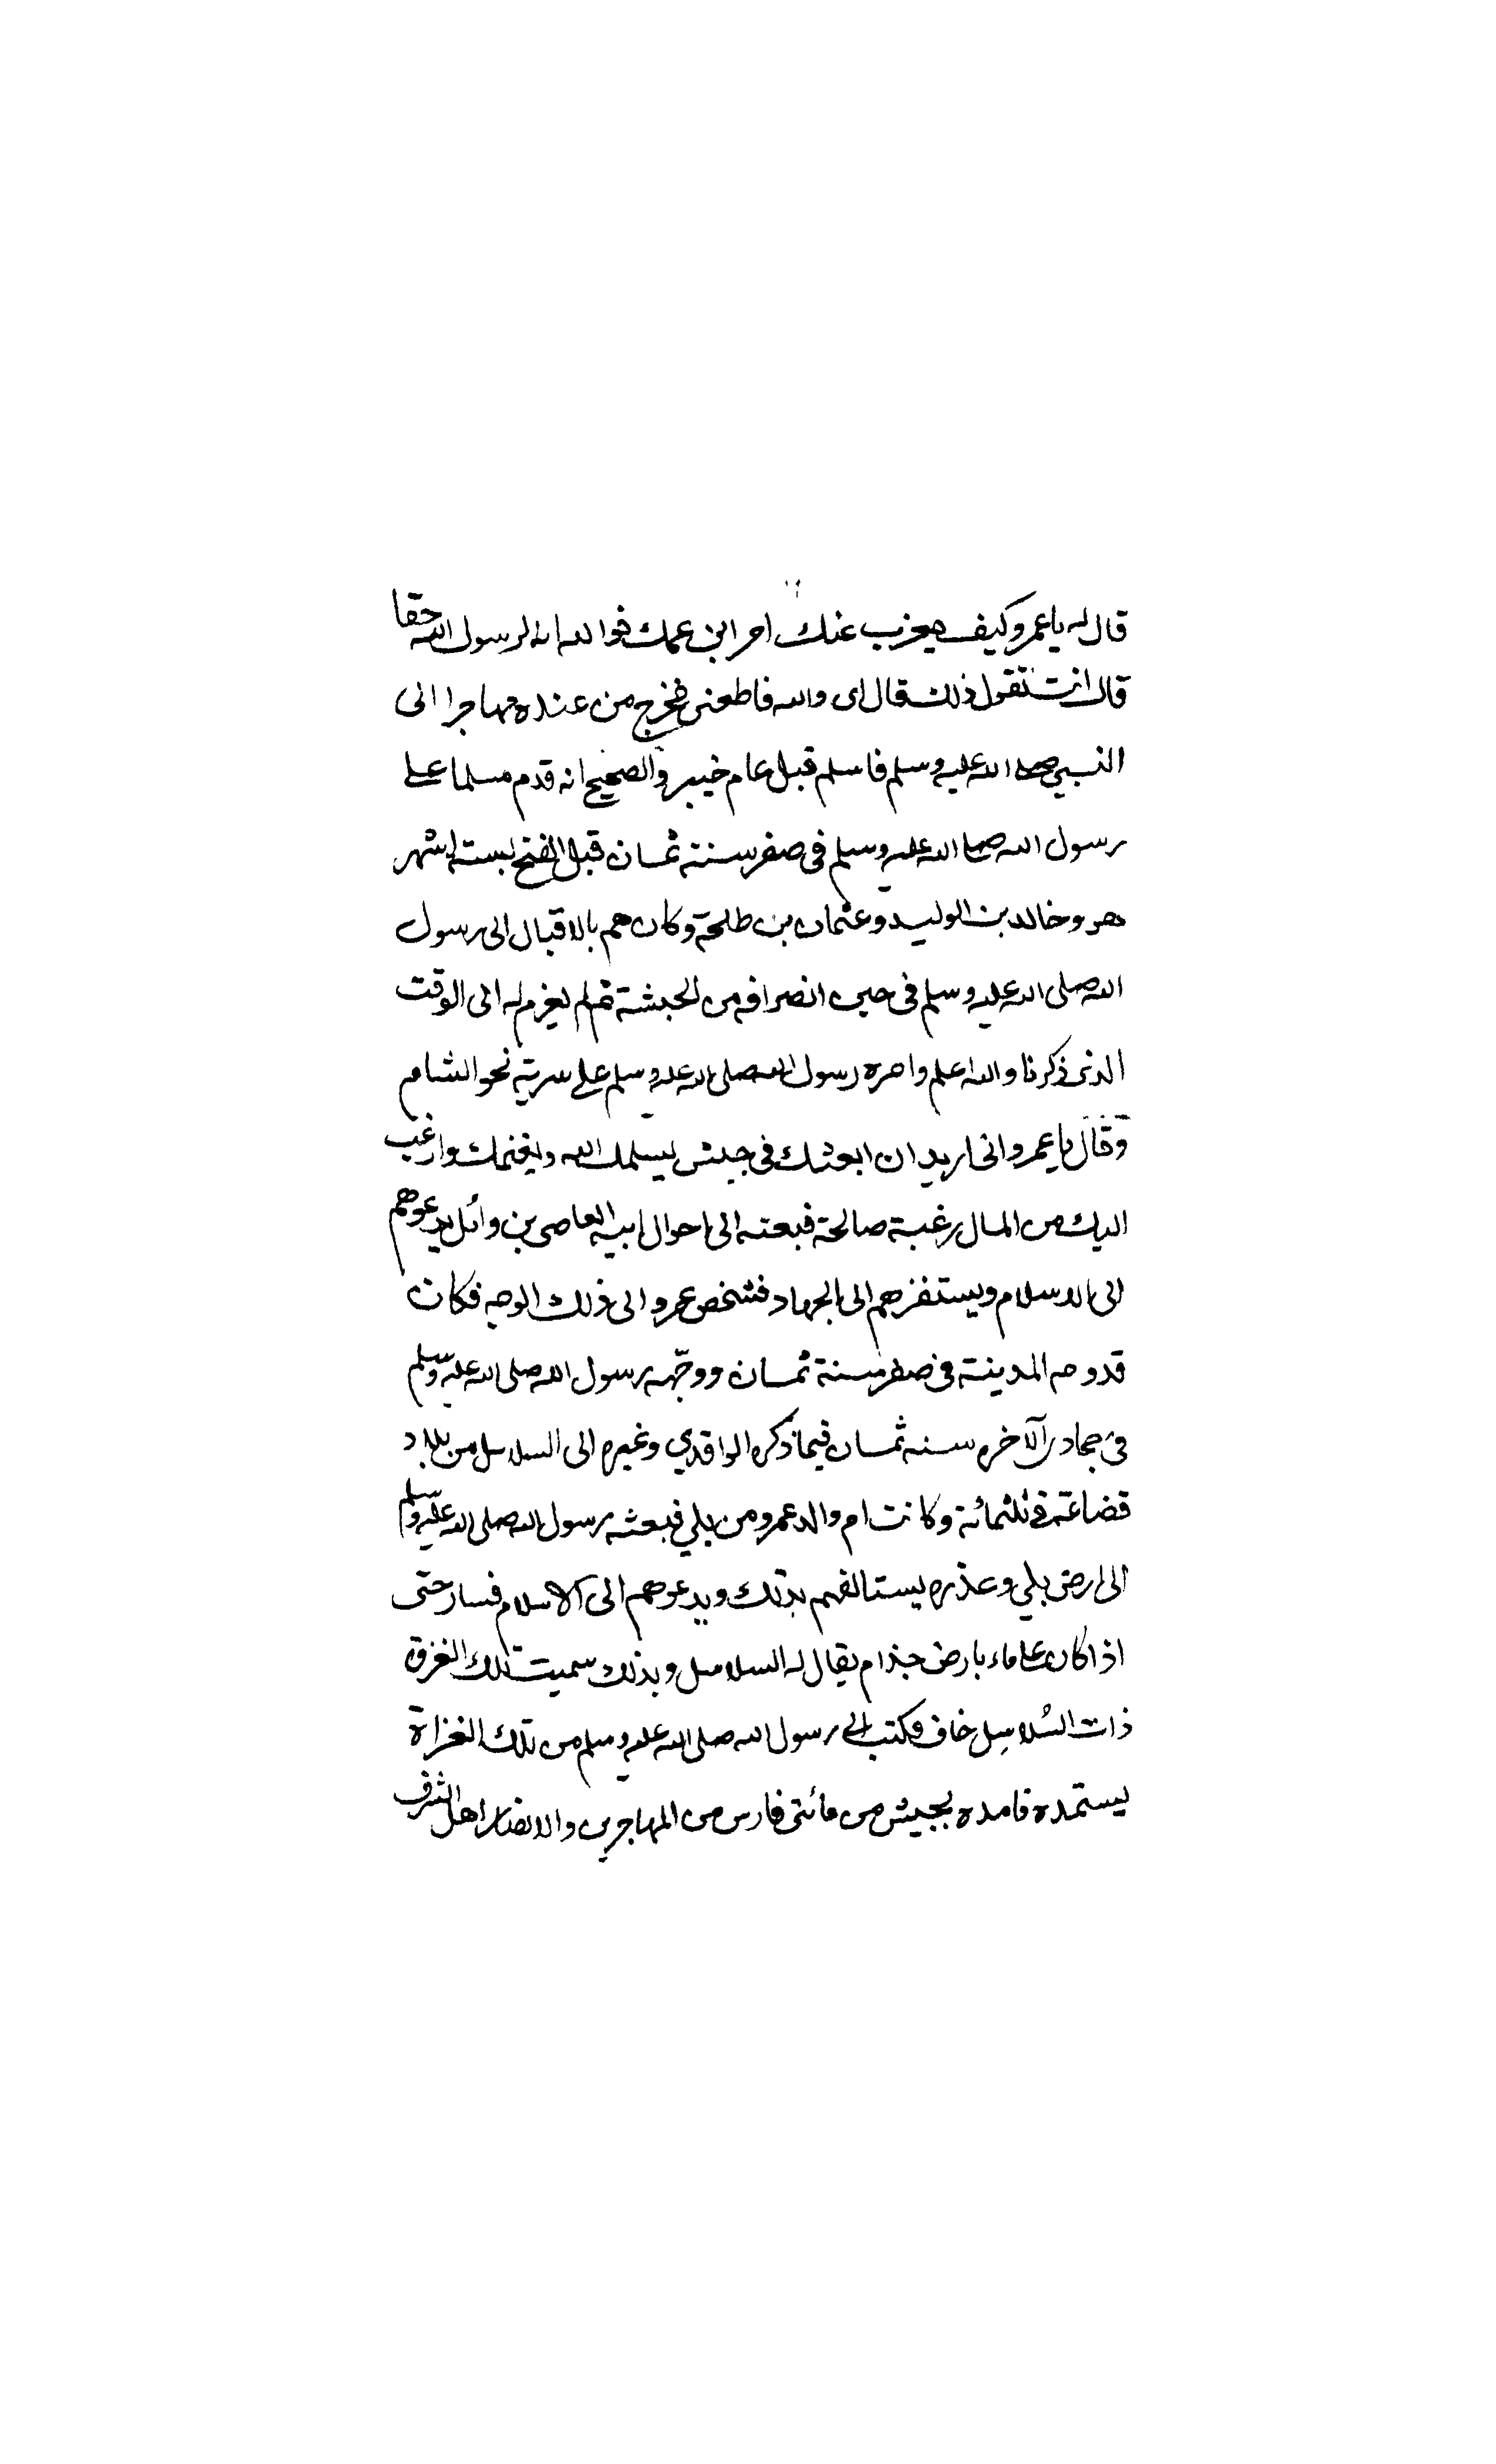 قال له يا عمرو كيف يعزب عنك امر ابن عمك فوالله انه لرسول الله حقا
قال انت تقول ذلك قال اى والله فاطعنى فخرج من عنده مهاجرا الى
النبي صلى الله عليه وسلم فاسلم قبل عام خيبر والصحيح انه قدم مسلما على
رسول الله صلى الله عليه وسلم فى صفر سنة ثمان قبل الفتح بستة اشهر
هو وخالد بن الوليد وعثمان بن طلحة وكان هم بالاقبال الى رسول
الله صلى الله عليه وسلم فى حين انصرافه من الحبشة ثم لم يعزم له الى الوقت
الذى ذكرنا والله اعلم وامره رسول الله صلى الله عليه وسلم على سرية نحو الشام
وقال يا عمرو انى اريد ان ابعثك فى جيش يسلمك الله ويغنمك وارغب
اليك من المال رغبة صالحة فبعثه الى اخوال ابيه العاصى بن وائل يدعوهم
الى الاسلام ويستنفزهم الى الجهاد فشخص عمرو الى ذلك الوجه فكان
قدومه المدينة فى صفر سنة ثمان ووجّهه رسول الله صلى الله عليه وسلم
فى جمادى الآخره سنه ثمان فيما ذكره الواقدي وغيره الى السلاسل من بلاد
قضاعة فى ثلثمائة وكانت ام والد عمرو من بلي فبعثه رسول الله صلى الله عليه وسلم
الى ارض بلي وعذره يستالفهم بذلك ويدعوهم الى الاسلام فسار حتى
اذا كان على ماء بارض جذام يقال له السلاسل وبذلك سميت تلك الغزوة
ذات السُلاسِل خاف فكتب الى رسول الله صلى الله عليه وسلم من تلك الغزاة
يستمده فامده بجيش من مائتى فارس من المهاجرين والانصار اهل الشرف